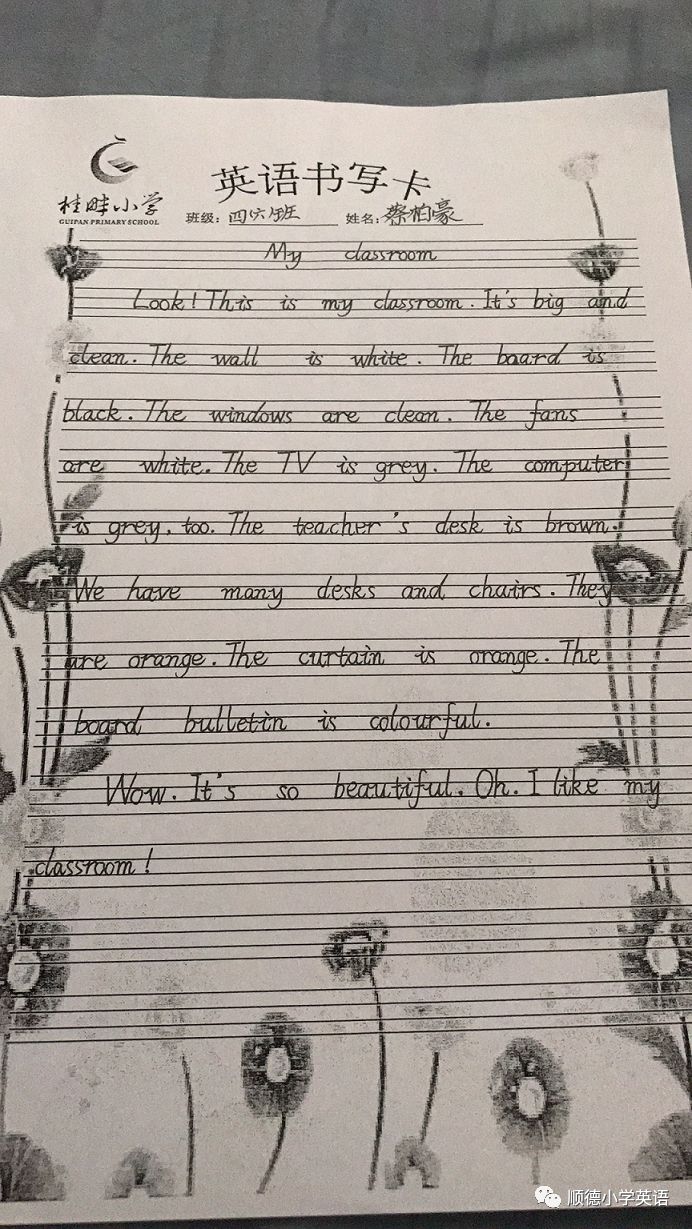 英语书写卡
桂畔小学
GUIPAN PRIMARY SCHOOL
班级：四(六)班 姓名：蔡柏豪
My classroom
Look! This is my classroom. It's big and
clean. The wall is white. The board is
black. The windows are clean. The fans
are white. The TV is grey. The computer
is grey, too. The teacher's desk is brown.
We have many desks and chairs. They
are orange. The curtain is orange. The
board bulletin is colourful.
Wow. It's so beautiful. Oh. I like my
classroom!
顺德小学英语